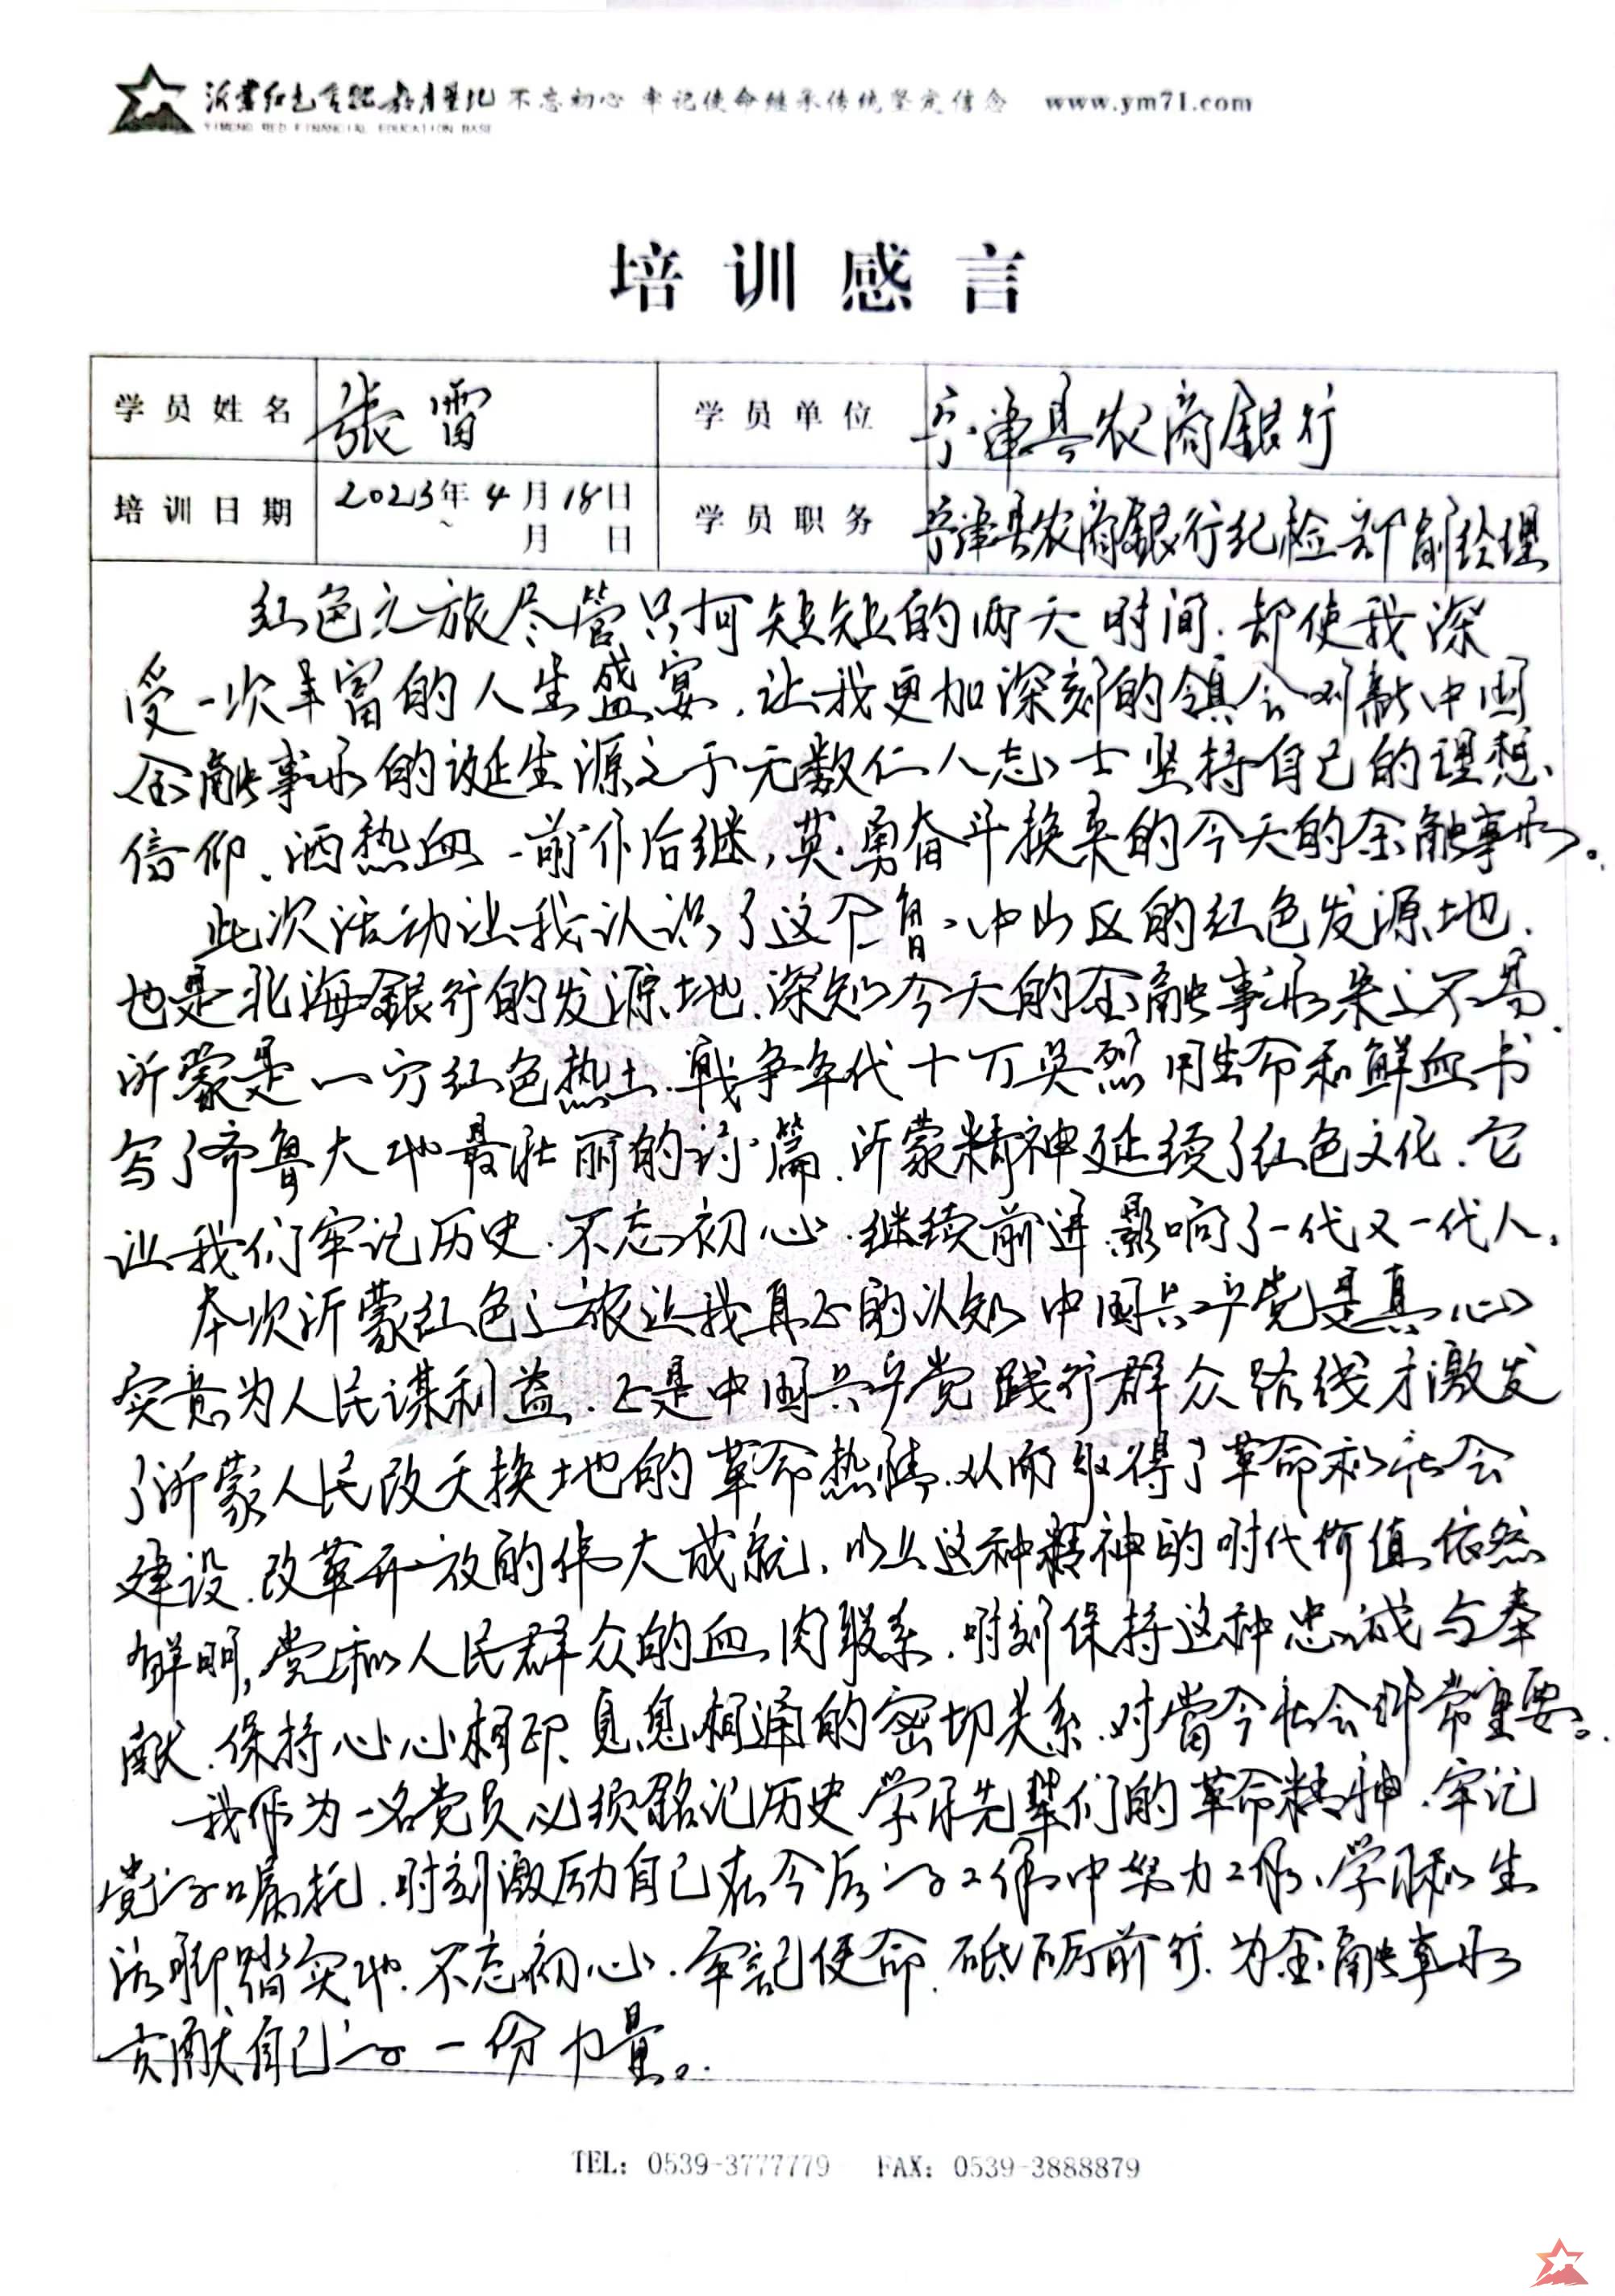 沂蒙红色金融教育基地 不忘初心 牢记使命继承传统坚定信念 www.ym71.com
YIMENG RED FINANCIAL EDUCATION BASE
培训感言
学员姓名 张雷 学员单位 宁津县农商銀行
培训日期 2023年4月18日 学员职务 宁津县农商銀行纪检部副经理
~ 月 日
红色之旅尽管只有短短的两天时间.却使我深
受一次丰富的人生盛宴.让我更加深刻的领会对新中国
金融事业的诞生源之于无数仁人志士坚持自己的理想、
信仰、洒热血、前仆后继,英勇奋斗换来的今天的金融事业。
此次活动让我认识了这个鲁中山区的红色发源地.
也是北海銀行的发源地.深知今天的金融事业来之不易.
沂蒙是一方红色热土.戰争年代十万英烈用生命和鲜血书
写了齐鲁大地最壮丽的诗篇.沂蒙精神延续了红色文化.它
让我们牢记历史.不忘初心.继续前进.影响了一代又一代人.
本次沂蒙红色之旅让我真正的认知中国共产党是真心
实意为人民谋利益.正是中国共产党践行群众路线才激发
了沂蒙人民改天换地的革命热情.从而取得了革命和社会
建设.改革开放的伟大成就.以上这种精神的时代价值依然
鲜明,党和人民群众的血肉联系.时刻保持这种忠诚与奉
献.保持心心相印、息息相通的密切关系.对當今社会非常重要。
我作为一名党员必须銘记历史学习先辈们的革命精神.牢记
党的嘱托.时刻激励自己在今后的工作中努力工作、学习和生
活脚踏实地.不忘初心.牢記使命.砥砺前行.为金融事业
贡献自己的一份力量。
TEL: 0539-3777779 FAX: 0539-3888879